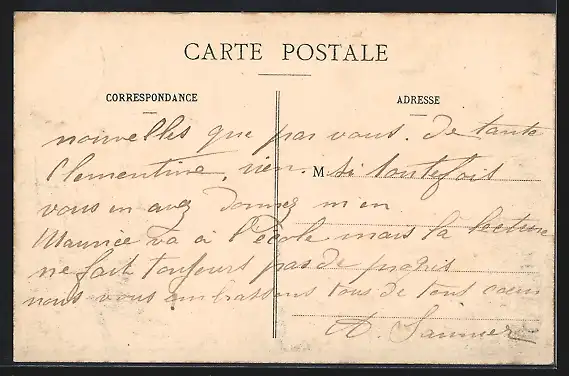 CARTE POSTALE
CORRESPONDANCE
ADRESSE
nouvelles que par vous. de tante
Clementine, rien. M si toutefois
vous en avez donnez m en
Maurice va à l'école mais la lecture
ne fait toujours pas de progrès
nous vous embrassons tous de tout cœur